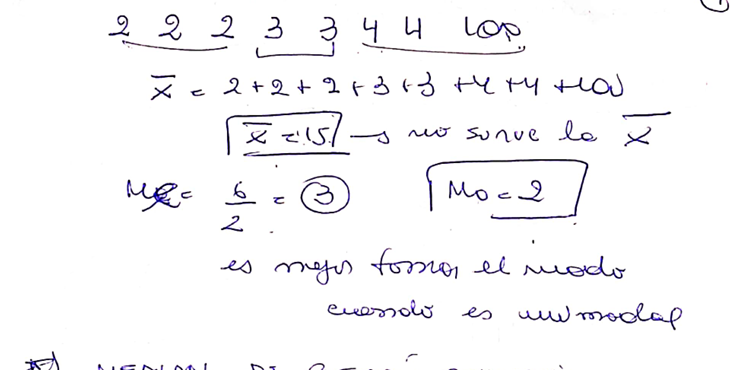 2 2 2 3 3 4 4 100
x̄ = 2+2+2+3+3+4+4+100
x̄ = 15 → no sirve la x̄
Me = 6/2 = 3 Mo = 2
es mejor tomar el modo
cuando es unimodal